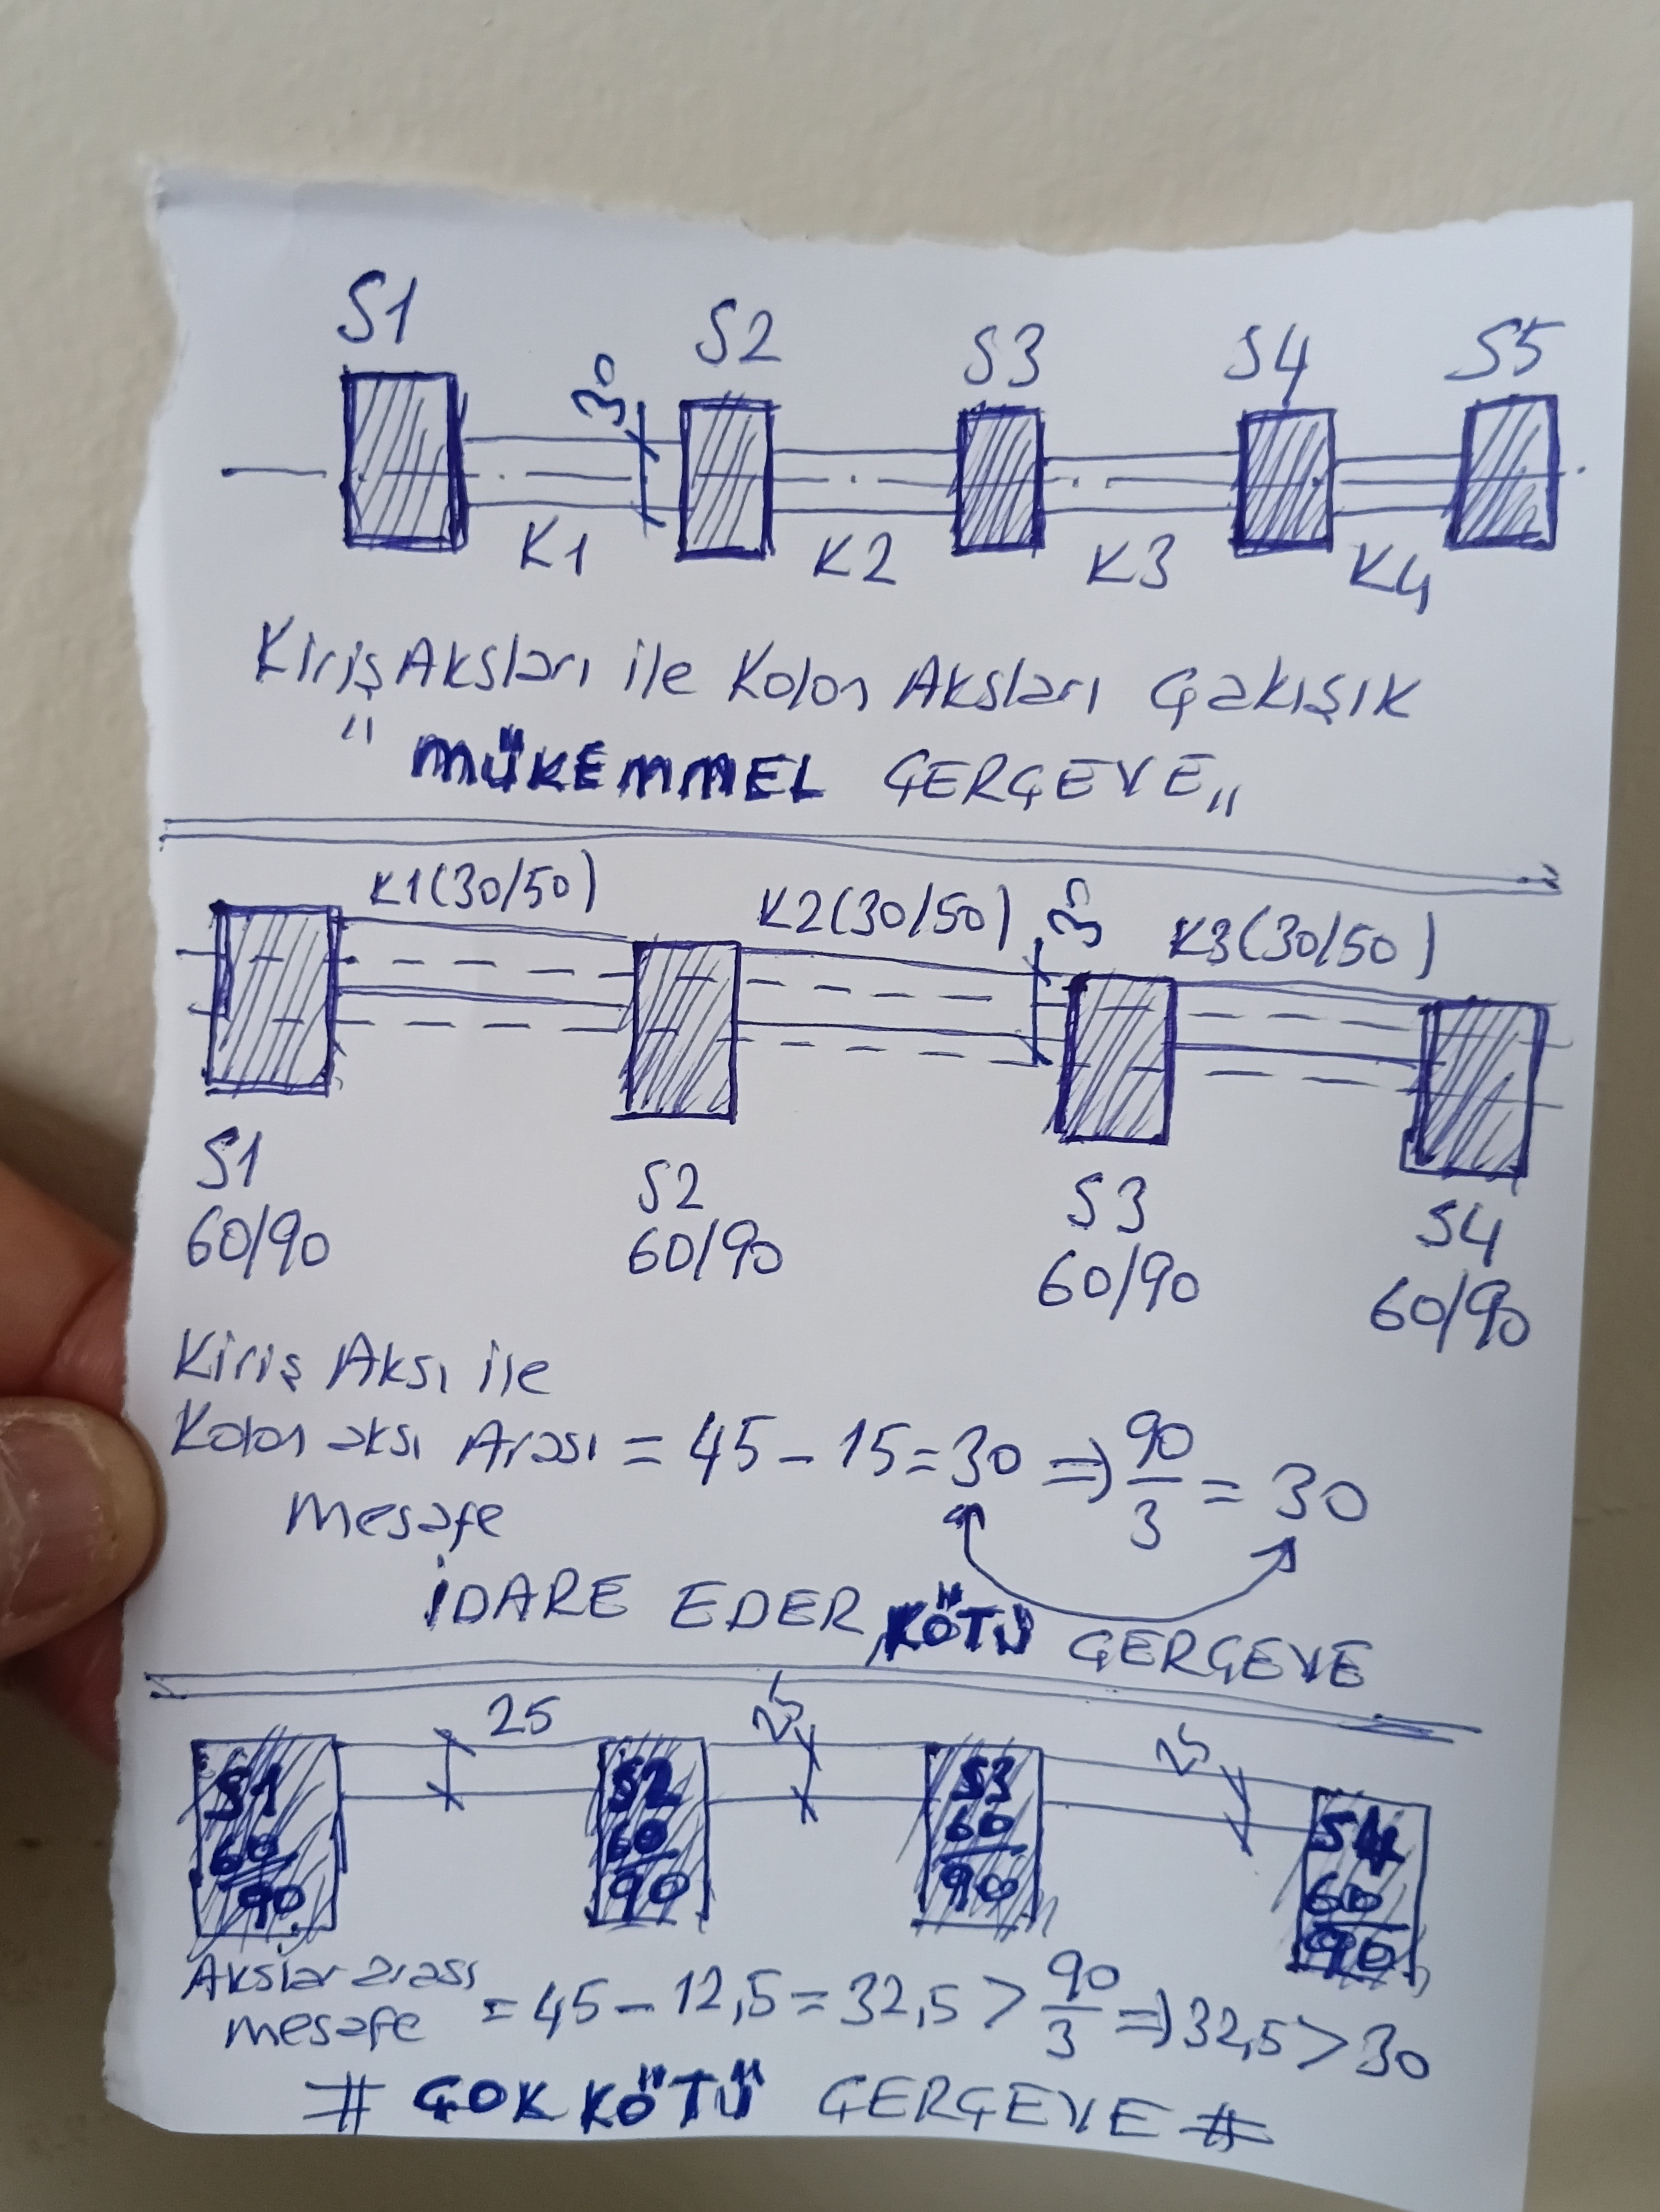 S1 S2 S3 S4 S5
30
K1 K2 K3 K4
Kiriş Aksları ile Kolon Aksları Çakışık
"MÜKEMMEL ÇERÇEVE"
K1(30/50) K2(30/50) 30 K3(30/50)
S1 S2 S3 S4
60/90 60/90 60/90 60/90
Kiriş Aksı ile
Kolon aksı Arası = 45 - 15 = 30 => 90/3 = 30
Mesafe
İDARE EDER, KÖTÜ ÇERÇEVE
25 25 25
S1 S2 S3 S4
60/90 60/90 60/90 60/90
Akslar arası
mesafe = 45 - 12,5 = 32,5 > 90/3 => 32,5 > 30
# ÇOK KÖTÜ ÇERÇEVE #